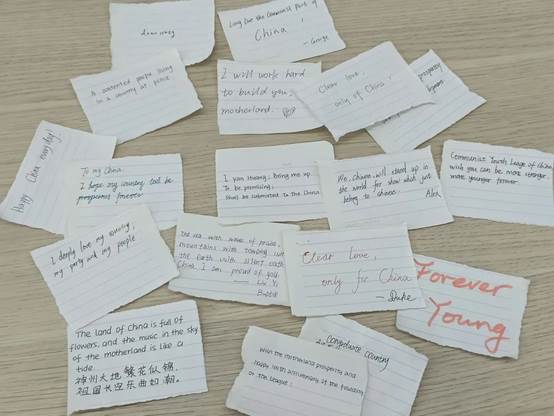 Long live the Communist Party of
China!
- George
A contented people living
in a country at peace
I will work hard
to build you,
motherland.
Clear love,
only of China!
prosperity
Happy China everyday!
To my China
I hope my country will be
prosperous forever
I yan Huang, Bring me up
To be promising,
Shall be submitted to the China
We, Chinese, will stand up in
the world for show which just
belong to shines.
Alex
Communist Youth League of China
wish you can be more stronge
more younger forever
I deeply love my country,
my party and my people
The sea with wave of praise,
mountains with towering
the Earth with silent oath
China I am proud of you.
Clear Love,
only for China
- Duke
Forever
Young
The land of China is full of
flowers, and the music in the sky
of the motherland is like a
tide.
神州大地繁花似锦,
祖国长空乐曲如潮。
Congratulate Country
Wish the motherland prosperity and
anniversary of the founding
of the League!